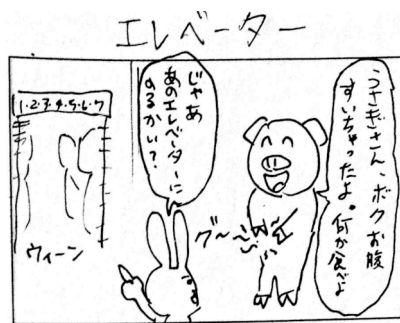 エレベーター
うさぎさん、ボクお腹
すいちゃったよ。何か食べよ
グ～～～
じゃあ
あのエレベーターに
のるかい?
1・2・3・4・5・6・7
ウィーン